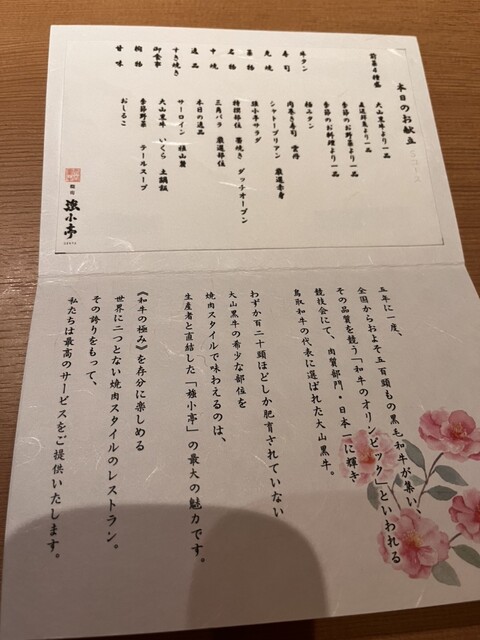 本日のお献立
前菜4種盛 大山黒牛より一品
五道邦友より一品
季節のお野菜より一品
季節のお料理より一品
牛タン 極みタン
寿司 肉巻き寿司 雲丹
先焼 シャトーブリアン 厳選赤身
葉物 強小亭サラダ
名物 特撰部位 藁焼き ダッチオーブン
中焼 三角バラ 厳選部位
逸品 本日の逸品
すき焼き サーロイン 強山盤
御食事 大山黒牛 いくら 土鍋飯
椀物 季節野菜 テールスープ
甘味 おしるこ
強小亭
五年に一度、
全国からおよそ五百頭もの黒毛和牛が集い、
その品質を競う「和牛のオリンピック」といわれる
競技会にて、肉質部門・日本一に輝き
鳥取和牛の代表に選ばれた大山黒牛。
わずか百二十頭ほどしか肥育されていない
大山黒牛の希少な部位を
焼肉スタイルで味わえるのは、
生産者と直結した「強小亭」の最大の魅力です。
《和牛の極み》を存分に楽しめる
世界に二つとない焼肉スタイルのレストラン。
その誇りをもって、
私たちは最高のサービスをご提供いたします。